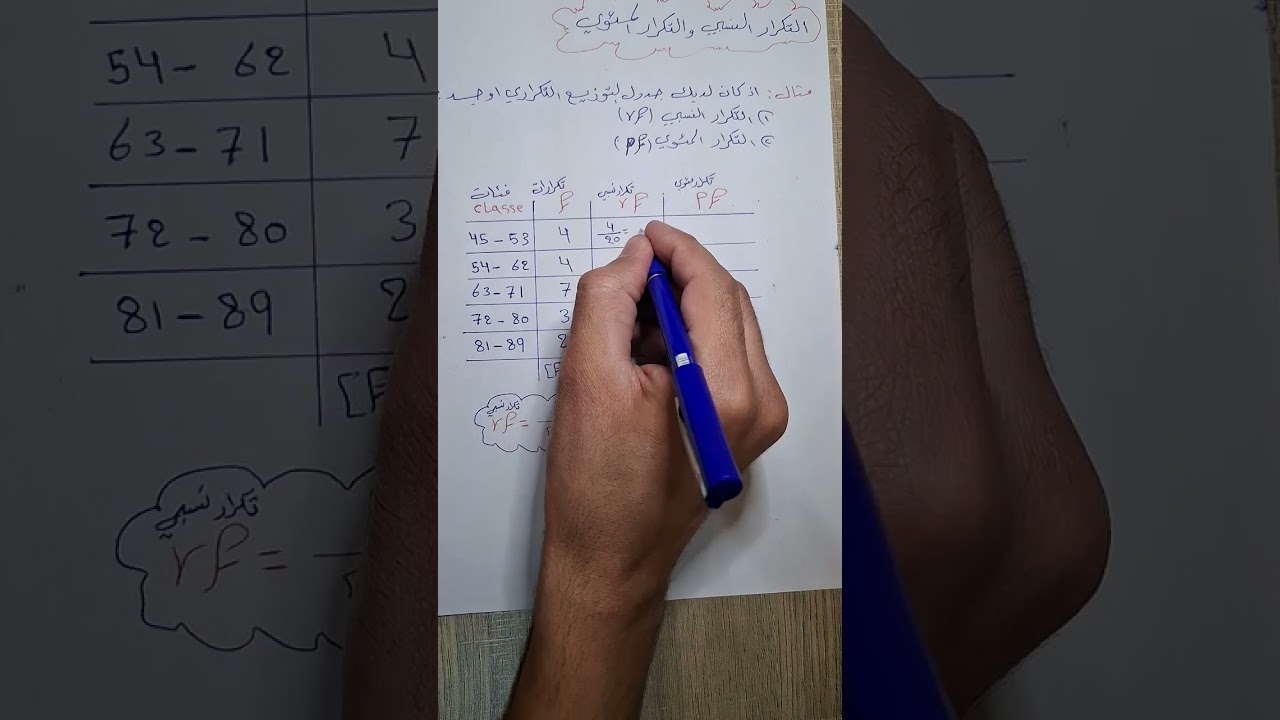 التكرار النسبي والتكرار المئوي
مثال: اذ كان لديك جدول لتوزيع التكراري اوجد:
١) التكرار النسبي (rf)
٢) التكرار المئوي (pf)
فئات تكرارات تكرار نسبي تكرار مئوي
classe f rf pf
45 - 53 4 4/20 =
54 - 62 4
63 - 71 7
72 - 80 3
81 - 89 2
تكرار نسبي
rf =
54 - 62 4
63 - 71 7
72 - 80 3
81 - 89 2
تكرار نسبي
rf =